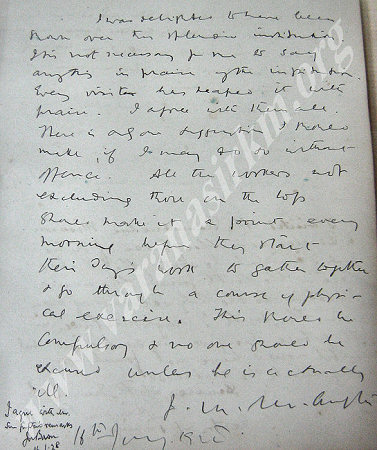 I was delighted to have been
shown over this splendid institution.
It is not necessary for me to say
anything in praise of the institution.
Every visitor has heaped it with
praise. I agree with them all.
There is only one suggestion I should
make, if I may do so without
offence. All the workers not
excluding those on the top
should make it a point every
morning before they start
their day's work to gather together
& go through a course of physi-
cal exercise. This should be
compulsory & no one should be
excused unless he is actually
ill.
I agree with
remarks
16th
www.varanasirkm.org